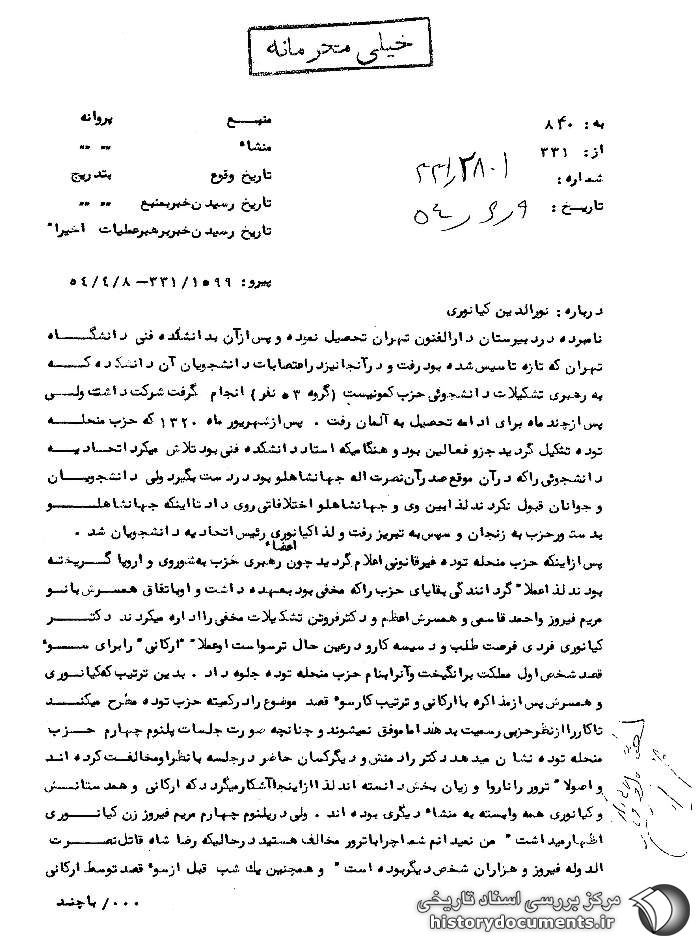 خیلی محرمانه
به: ۸۴۰
از: ۳۳۱
شماره:
تاریخ:
منبع پروانه
منشاء " "
تاریخ وقوع بتدریج
تاریخ رسیدن خبر بمنبع " "
تاریخ رسیدن خبر برهبر عملیات اخیرا"
پیرو: ۳۳۱/۱۵۹۹ – ۵۴/۴/۸
درباره: نورالدین کیانوری
نامبرده در دبیرستان دارالفنون تهران تحصیل نموده و پس از آن بدانشکده فنی دانشگاه
تهران که تازه تاسیس شده بود رفت و در آنجا نیز در اعتصابات دانشجویان آن دانشکده که
به رهبری تشکیلات دانشجوئی حزب کمونیست (گروه ۵۳ نفر) انجام گرفت شرکت داشت ولی
پس از چند ماه برای ادامه تحصیل به آلمان رفت . پس از شهریور ماه ۱۳۲۰ که حزب منحله
توده تشکیل گردید جزو فعالین بود و هنگامیکه استاد دانشکده فنی بود تلاش میکرد اتحادیه
دانشجوئی را که در آن موقع صدر آن نصرت اله جهانشاهلو بود در دست بگیرد ولی دانشجویان
و جوانان قبول نکردند لذا بین وی و جهانشاهلو اختلافاتی روی داد تا اینکه جهانشاهلو
بدستور حزب به زنجان و سپس به تبریز رفت و لذا کیانوری رئیس اتحادیه دانشجویان شد .
پس از اینکه حزب منحله توده غیرقانونی اعلام گردید چون اعضاء رهبری حزب به شوروی و اروپا گریخته
بودند لذا عملا" گردانندگی بقایای حزب را که مخفی بود بعهده داشت و او باتفاق همسرش بانو
مریم فیروز و احمد قاسمی و همسرش اعظم و دکتر فروتن تشکیلات مخفی را اداره میکردند دکتر
کیانوری فردی فرصت طلب و دسیسه کار و در عین حال ترسو است او عملا" "ارکانی" را برای سوء
قصد شخص اول مملکت برانگیخت و آنرا بنام حزب منحله توده جلوه داد . بدین ترتیب که کیانوری
و همسرش پس از مذاکره با ارکانی و ترتیب کار سوء قصد موضوع را در کمیته حزب توده مطرح میکنند
تا کار را از نظر حزبی رسمیت بدهند اما موفق نمیشوند و چنانچه صورت جلسات پلنوم چهارم حزب
منحله توده نشان میدهد دکتر رادمنش و دیگر کسان حاضر در جلسه با نظر او مخالفت کرده اند
و اصولا" ترور را ناروا و زیان بخش دانسته اند لذا از اینجا آشکار میگردد که ارکانی و همدستانش
و کیانوری همه وابسته به منشاء دیگری بوده اند . ولی در پلنوم چهارم مریم فیروز زن کیانوری
اظهار میداشت " من نمیدانم شما چرا با ترور مخالف هستید در حالیکه رضا شاه قاتل نصرت
الدوله فیروز و هزاران شخص دیگر بوده است " و همچنین یک شب قبل از سوء قصد توسط ارکانی
۰۰۰/ با چند
مرکز بررسی اسناد تاریخی
historydocuments.ir